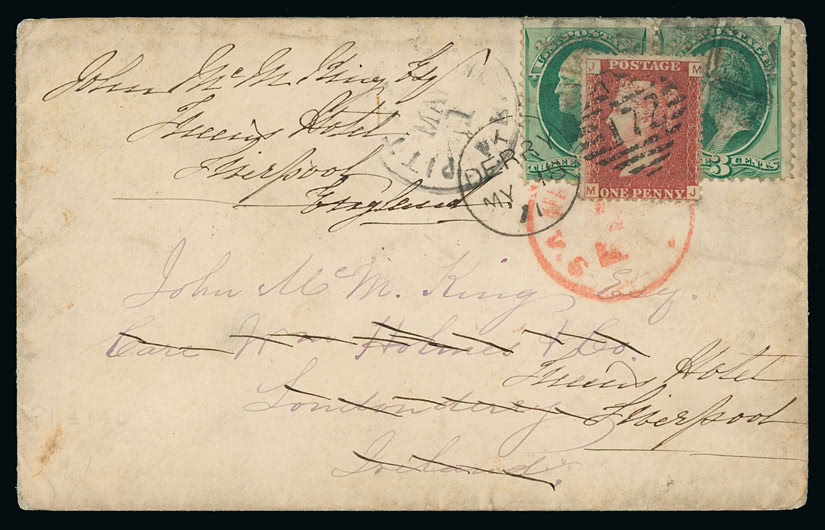 John McM King Esq
Hotel
Liverpool
England
U.S. POSTAGE
POSTAGE
J M
POSTAGE
M J
ONE PENNY
THREE
3 CENTS
172
DERRY
MY 16
71
MA
John McM. King Esq.
Care Wm Holmes & Co.
Londonderry
Ireland.
Hotel
Liverpool